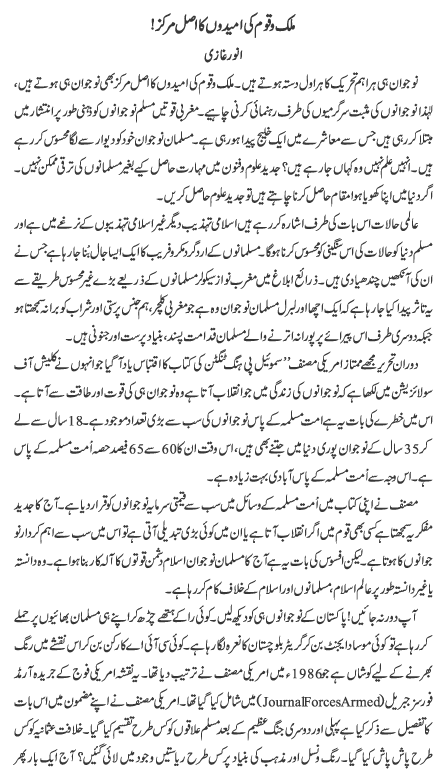 ملک و قوم کی امیدوں کا اصل مرکز!
انور غازی
نوجوان ہی ہر اہم تحریک کا ہراول دستہ ہوتے ہیں۔ ملک و قوم کی امیدوں کا اصل مرکز بھی نوجوان ہی ہوتے ہیں،
لہٰذا نوجوانوں کی مثبت سرگرمیوں کی طرف رہنمائی کرنی چاہیے۔ مغربی قوتیں مسلم نوجوانوں کو ذہنی طور پر انتشار میں
مبتلا کر رہی ہیں جس سے معاشرے میں ایک خلیج پیدا ہو رہی ہے۔ مسلمان نوجوان خود کو دیوار سے لگا محسوس کر رہے
ہیں۔ انہیں علم نہیں وہ کہاں جا رہے ہیں؟ جدید علوم و فنون میں مہارت حاصل کیے بغیر مسلمانوں کی ترقی ممکن نہیں۔
اگر دنیا میں اپنا کھویا ہوا مقام حاصل کرنا چاہتے ہیں تو جدید علوم حاصل کریں۔
عالمی حالات اس بات کی طرف اشارہ کر رہے ہیں اسلامی تہذیب دیگر غیر اسلامی تہذیبوں کے نرغے میں ہے اور
مسلم دنیا کو حالات کی اس سنگینی کو محسوس کرنا ہوگا۔ مسلمانوں کے اردگرد مکر و فریب کا ایک ایسا جال بُنا جا رہا ہے جس نے
ان کی آنکھیں چندھیا دی ہیں۔ ذرائع ابلاغ میں مغرب نواز سیکولر مسلمانوں کے ذریعے بڑے غیر محسوس طریقے سے
یہ تاثر پیدا کیا جا رہا ہے کہ ایک اچھا اور لبرل مسلمان نوجوان وہ ہے جو مغربی کلچر، ہم جنس پرستی اور شراب کو برا نہ سمجھتا ہو
جبکہ دوسری طرف اس پیرائے پر پورا نہ اترنے والے مسلمان قدامت پسند، بنیاد پرست اور جنونی ہیں۔
دورانِ تحریر مجھے ممتاز امریکی مصنف ’’سموئیل پی ہنگ ٹنگٹن کی کتاب کا اقتباس یاد آگیا جو انہوں نے کلیش آف
سولائزیشن میں لکھا ہے کہ نوجوانوں کی زندگی میں جو انقلاب آتا ہے وہ نوجوان ہی کی قوت اور طاقت سے آتا ہے۔
اس میں خطرے کی بات یہ ہے امت مسلمہ کے پاس نوجوانوں کی سب سے بڑی تعداد موجود ہے۔ 18 سال سے لے
کر 35 سال کے نوجوان پوری دنیا میں جتنے بھی ہیں، اس وقت ان کا 60 سے 65 فیصد حصہ اُمت مسلمہ کے پاس
ہے۔ اس وجہ سے اُمت مسلمہ کے پاس آبادی بہت زیادہ ہے۔
مصنف نے اپنی کتاب میں اُمت مسلمہ کے وسائل میں سب سے قیمتی سرمایہ نوجوانوں کو قرار دیا ہے۔ آج کا جدید
مفکر یہ سمجھتا ہے کسی بھی قوم میں اگر انقلاب آتا ہے یا ان میں کوئی بڑی تبدیلی آتی ہے تو اس میں سب سے اہم کردار نو
جوانوں کا ہوتا ہے۔ لیکن افسوس کی بات یہ ہے آج کا مسلمان نوجوان اسلام دشمن قوتوں کا آلہ کار بنا ہوا ہے۔ وہ دانستہ
یا غیر دانستہ طور پر عالم اسلام، مسلمانوں اور اسلام کے خلاف کام کر رہا ہے۔
آپ دور نہ جائیں! پاکستان کے نوجوانوں ہی کو دیکھ لیں۔ کوئی را کے ہتھے چڑھ کر اپنے ہی مسلمان بھائیوں پر حملے
کر رہا ہے تو کوئی موساد ایجنٹ بن کر گریٹر بلوچستان کا نعرہ لگا رہا ہے۔ کوئی سی آئی اے کا رکن بن کر اس نقشے میں رنگ
بھرنے کے لیے کوشاں ہے جو 1986ء میں امریکی مصنف نے ترتیب دیا تھا۔ یہ نقشہ امریکی فوج کے جریدہ آرمڈ
فورسز جبریل (JournalForcesArmed) میں شامل کیا گیا تھا۔ امریکی مصنف نے اپنے مضمون میں اس بات
کا تفصیل سے ذکر کیا ہے پہلی اور دوسری جنگ عظیم کے بعد مسلم علاقوں کو کس طرح تقسیم کیا گیا۔ خلافت عثمانیہ کو کس
طرح پاش پاش کیا گیا۔ رنگ و نسل اور مذہب کی بنیاد پر کس طرح ریاستیں وجود میں لائی گئیں؟ آج ایک بار پھر